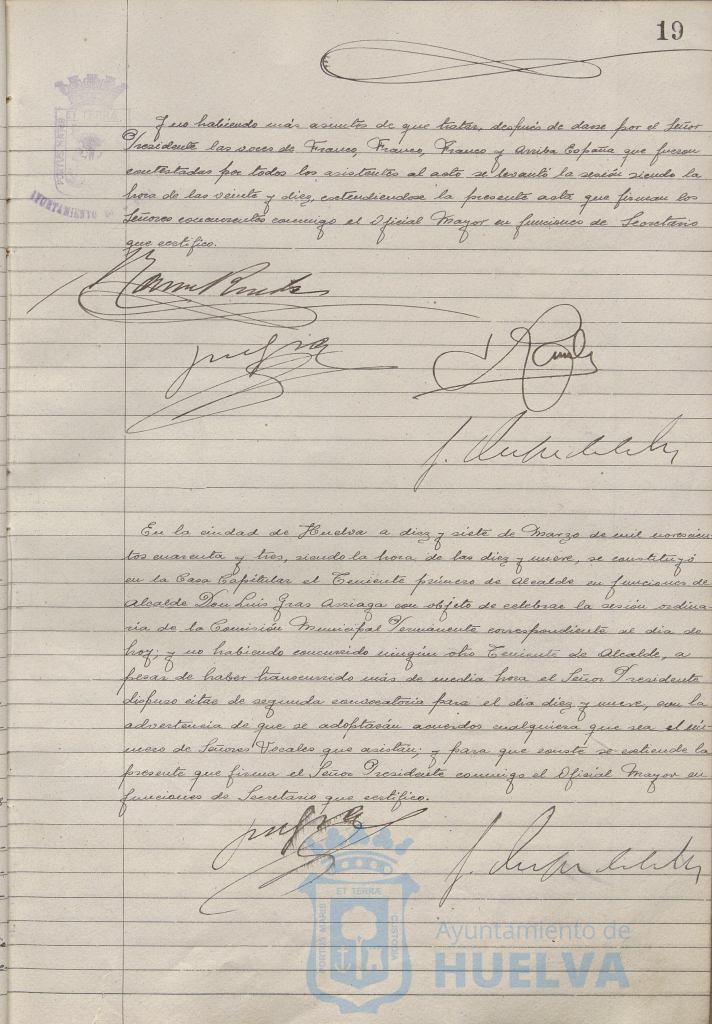 19
Y no habiendo más asuntos de que tratar, después de darse por el Señor
Presidente las voces de Franco, Franco, Franco y Arriba España que fueron
contestadas por todos los asistentes al acto se levantó la sesión siendo la
hora de las veinte y diez, extendiéndose la presente acta que firman los
Señores concurrentes conmigo el Oficial Mayor en funciones de Secretario
que certifico.
En la ciudad de Huelva a diez y siete de Marzo de mil novecien-
tos cuarenta y tres, siendo la hora de las diez y nueve, se constituyó
en la Casa Capitular el Teniente primero de Alcalde en funciones de
Alcalde Don Luis Gras Arriaga con objeto de celebrar la sesión ordina-
ria de la Comisión Municipal Permanente correspondiente al dia de
hoy; y no habiendo concurrido ningún otro Teniente de Alcalde, a
pesar de haber transcurrido más de media hora el Señor Presidente
dispuso citar de segunda convocatoria para el dia diez y nueve, con la
advertencia de que se adoptarán acuerdos cualquiera que sea el nú-
mero de Señores Vocales que asistan; y para que conste se extiende la
presente que firma el Señor Presidente conmigo el Oficial Mayor en
funciones de Secretario que certifico.
ET TERRÆ
PORTUS MARIS
CUSTODIA
Ayuntamiento de
HUELVA